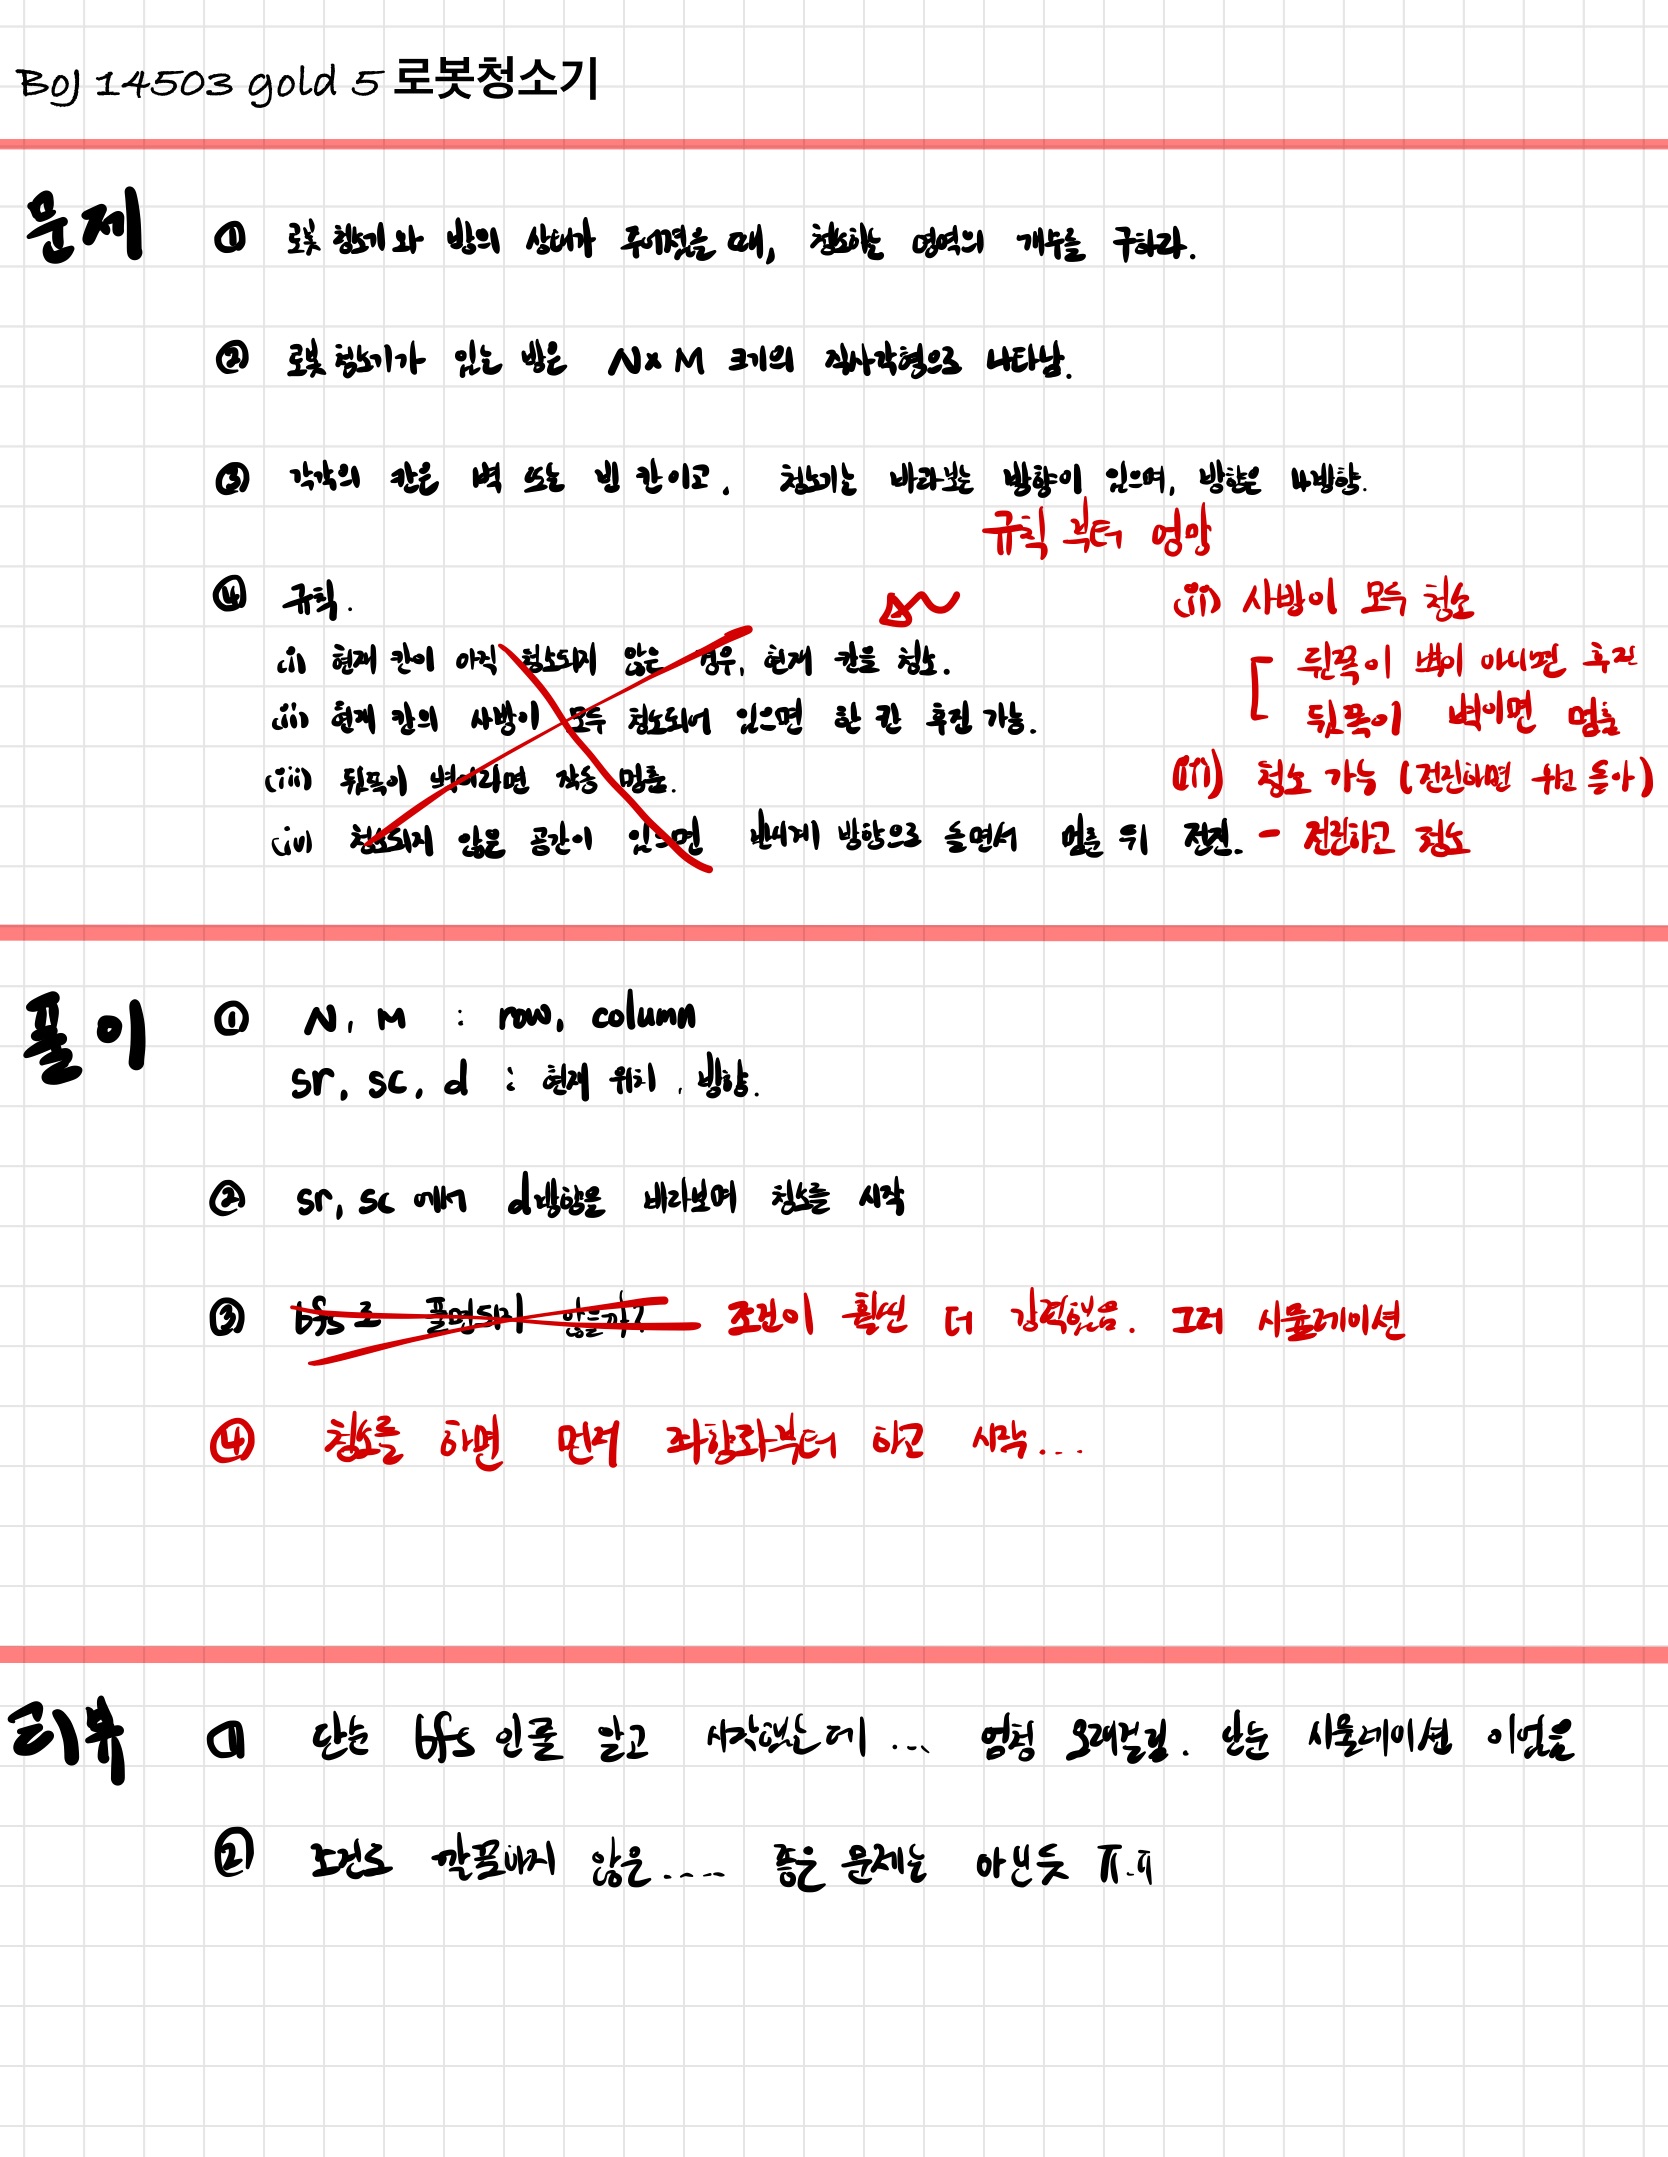 BOJ 14503 gold 5 로봇청소기
문제
① 로봇 청소기와 방의 상태가 주어졌을 때, 청소하는 영역의 개수를 구하라.
② 로봇 청소기가 있는 방은 N×M 크기의 직사각형으로 나타남.
③ 각각의 칸은 벽 또는 빈 칸이고. 청소기는 바라보는 방향이 있으며, 방향은 4방향.
규칙 부터 엉망
④ 규칙.
(i) 현재 칸이 아직 청소되지 않은 경우, 현재 칸을 청소.
(ii) 현재 칸의 사방이 모두 청소되어 있으면 한 칸 후진 가능.
(iii) 뒤쪽이 벽이라면 작동 멈춤.
(iv) 청소되지 않은 공간이 있으면 반시계 방향으로 돌면서 멈춘 뒤 전진. - 전진하고 청소
(ii) 사방이 모두 청소
뒤쪽이 벽이 아니면 후진
뒤쪽이 벽이면 멈춤
(iii) 청소 가능 (전진하면 우선 돌아)
풀이
① N, M : row, column
sr, sc, d : 현재 위치, 방향.
② sr, sc 에서 d방향을 바라보며 청소를 시작
③ bfs로 풀면되지 않을까? 조건이 훨씬 더 강력했음. 그저 시뮬레이션
④ 청소를 하면 먼저 좌향좌부터 하고 시작...
리뷰
① 단순 bfs인줄 알고 시작했는데... 엄청 오래걸림. 단순 시뮬레이션 이었음
② 조건도 깔끔하지 않은..... 좋은 문제는 아닌듯 ㅠ.ㅠ